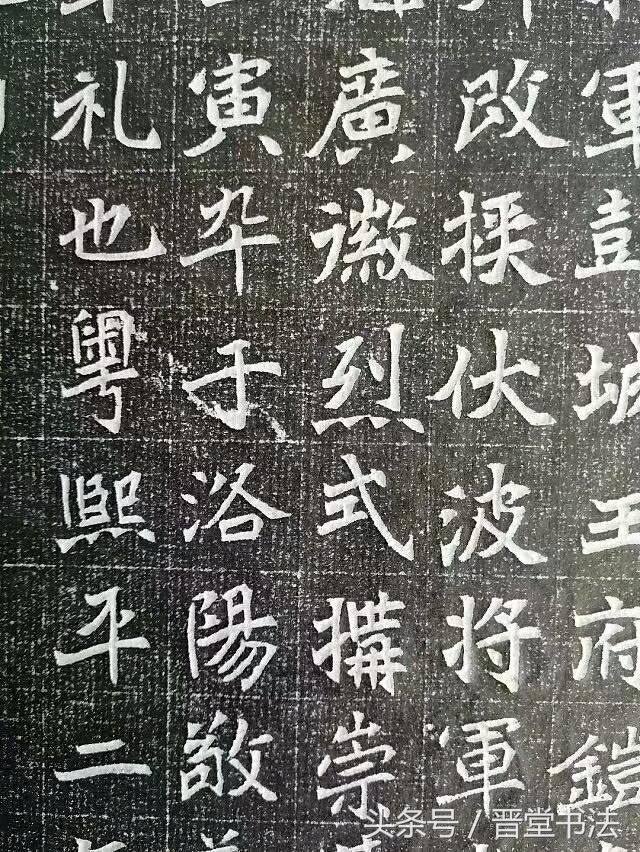 軍彭城王府鎧
改挾伏波将軍
廣徽烈式搆崇
寅卒于洛陽敬
礼也粤熙平二
头条号 / 晋堂书法